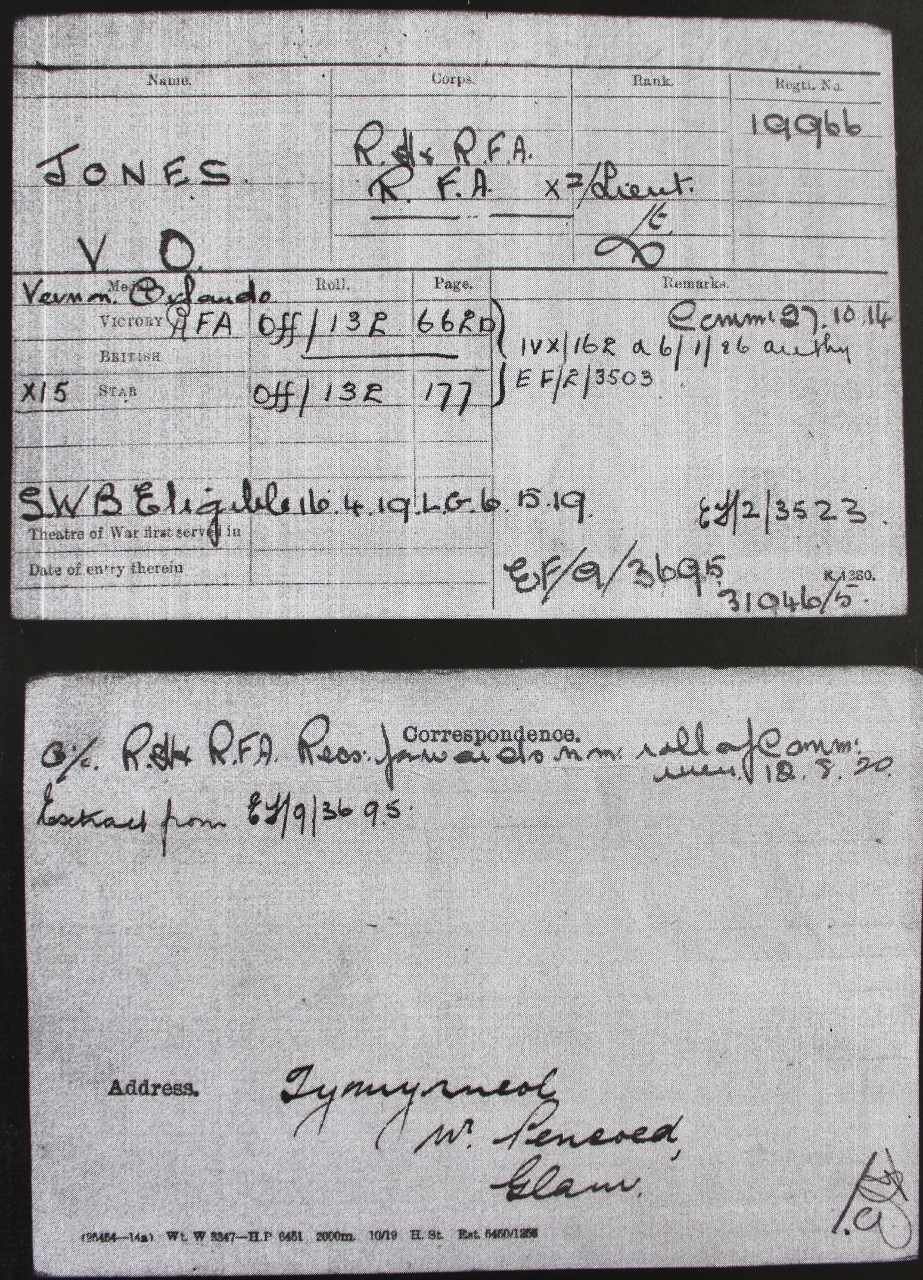 Name. Corps. Rank. Regtl. No.
19966
R.H & R.F.A.
JONES R. F.A. X 2/Lieut.
V. O.
Vernon Orlando
Medal Roll. Page. Remarks.
VICTORY RFA Off/132 662D Comm: 27.10.14
BRITISH IVX/162 d 6/1/26 authy
X15 STAR Off/132 177 EF/2/3503
SWB Eligible 16.4.19. L.G. 6. 15.19.
EF/2/3523.
Theatre of War first served in
Date of entry therein EF/9/3695
K. 1380.
31046/5.
Correspondence.
O/c. R.H & R.F.A. Recs. forwards nom. roll of Comm.
12.8.20.
Extract from EF/9/3695
Address.
Nr. Pencoed,
Glam.
(26454—14a) Wt. W 3347—H.P 6451 2000m. 10/19 H. St. Est. 5450/1256